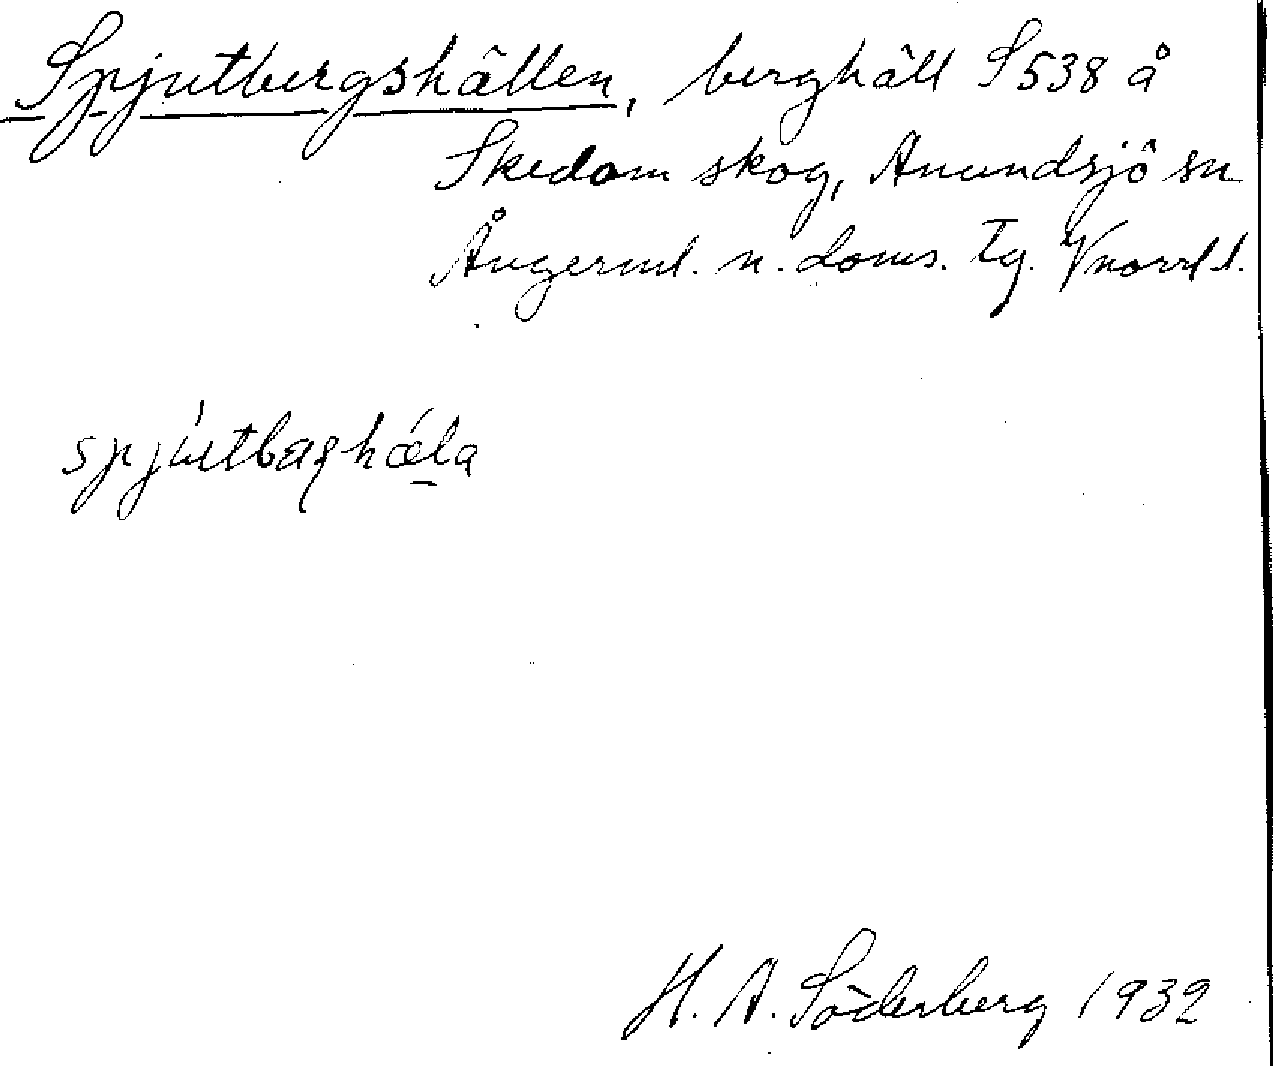 Spjutbergshällen, berghäll S 538 å
Skedom skog, Anundsjö sn
Ångerml. n. doms. tg. Vnorrl. l.
spju̍tbaghǽla
H. A. Söderberg 1932